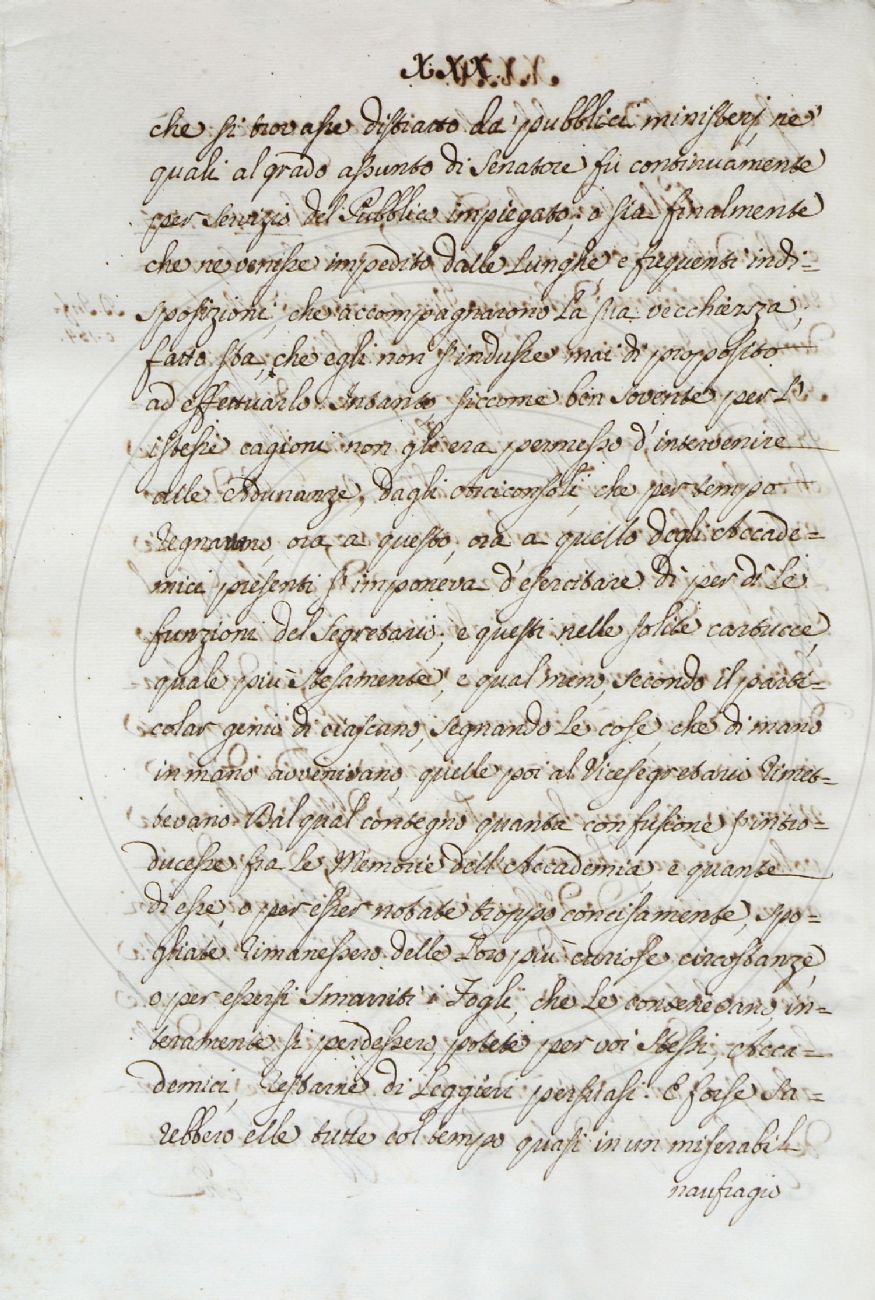 XXX.
che si trovasse distratto da' pubblici ministerj, ne'
quali al grado assunto di Senatore fù continuamente
per servizio del Pubblico impiegato, o sia finalmente
che ne venisse impedito dalle lunghe, e frequenti indi=
sposizioni, che accompagnarono la sua vecchiezza,
fatto sta, che egli non s'indusse mai di proposito
ad effettuarlo. Intanto, siccome ben sovente per l'
istesse cagioni non gli era permesso d'intervenire
alle Adunanze, dagli Arciconsoli, che per tempo
regnarono, ora a questo, ora a quello degli Accade=
mici presenti s'imponeva d'esercitare di per dì le
funzioni del Segretario; e questi nelle solite cartucce,
quale più stesamente, e qual meno, secondo il parti=
colar genio di ciascuno, segnando le cose, che di mano
in mano avvenivano, quelle poi al Vicesegretario rimet=
tevano. Dal qual contegno quanta confusione s'intro=
ducesse fra le Memorie dell'Accademia, e quante
di esse, o per esser notate troppo concisamente, spo=
gliate rimanessero delle loro più curiose circostanze,
o per essersi smarriti i Fogli, che le contenevano, in=
teramente si perdessero, potete per voi stessi, Acca=
demici, restarne di leggieri persuasi. E forse sa=
rebbero elle tutte col tempo quasi in un miserabil
naufragio